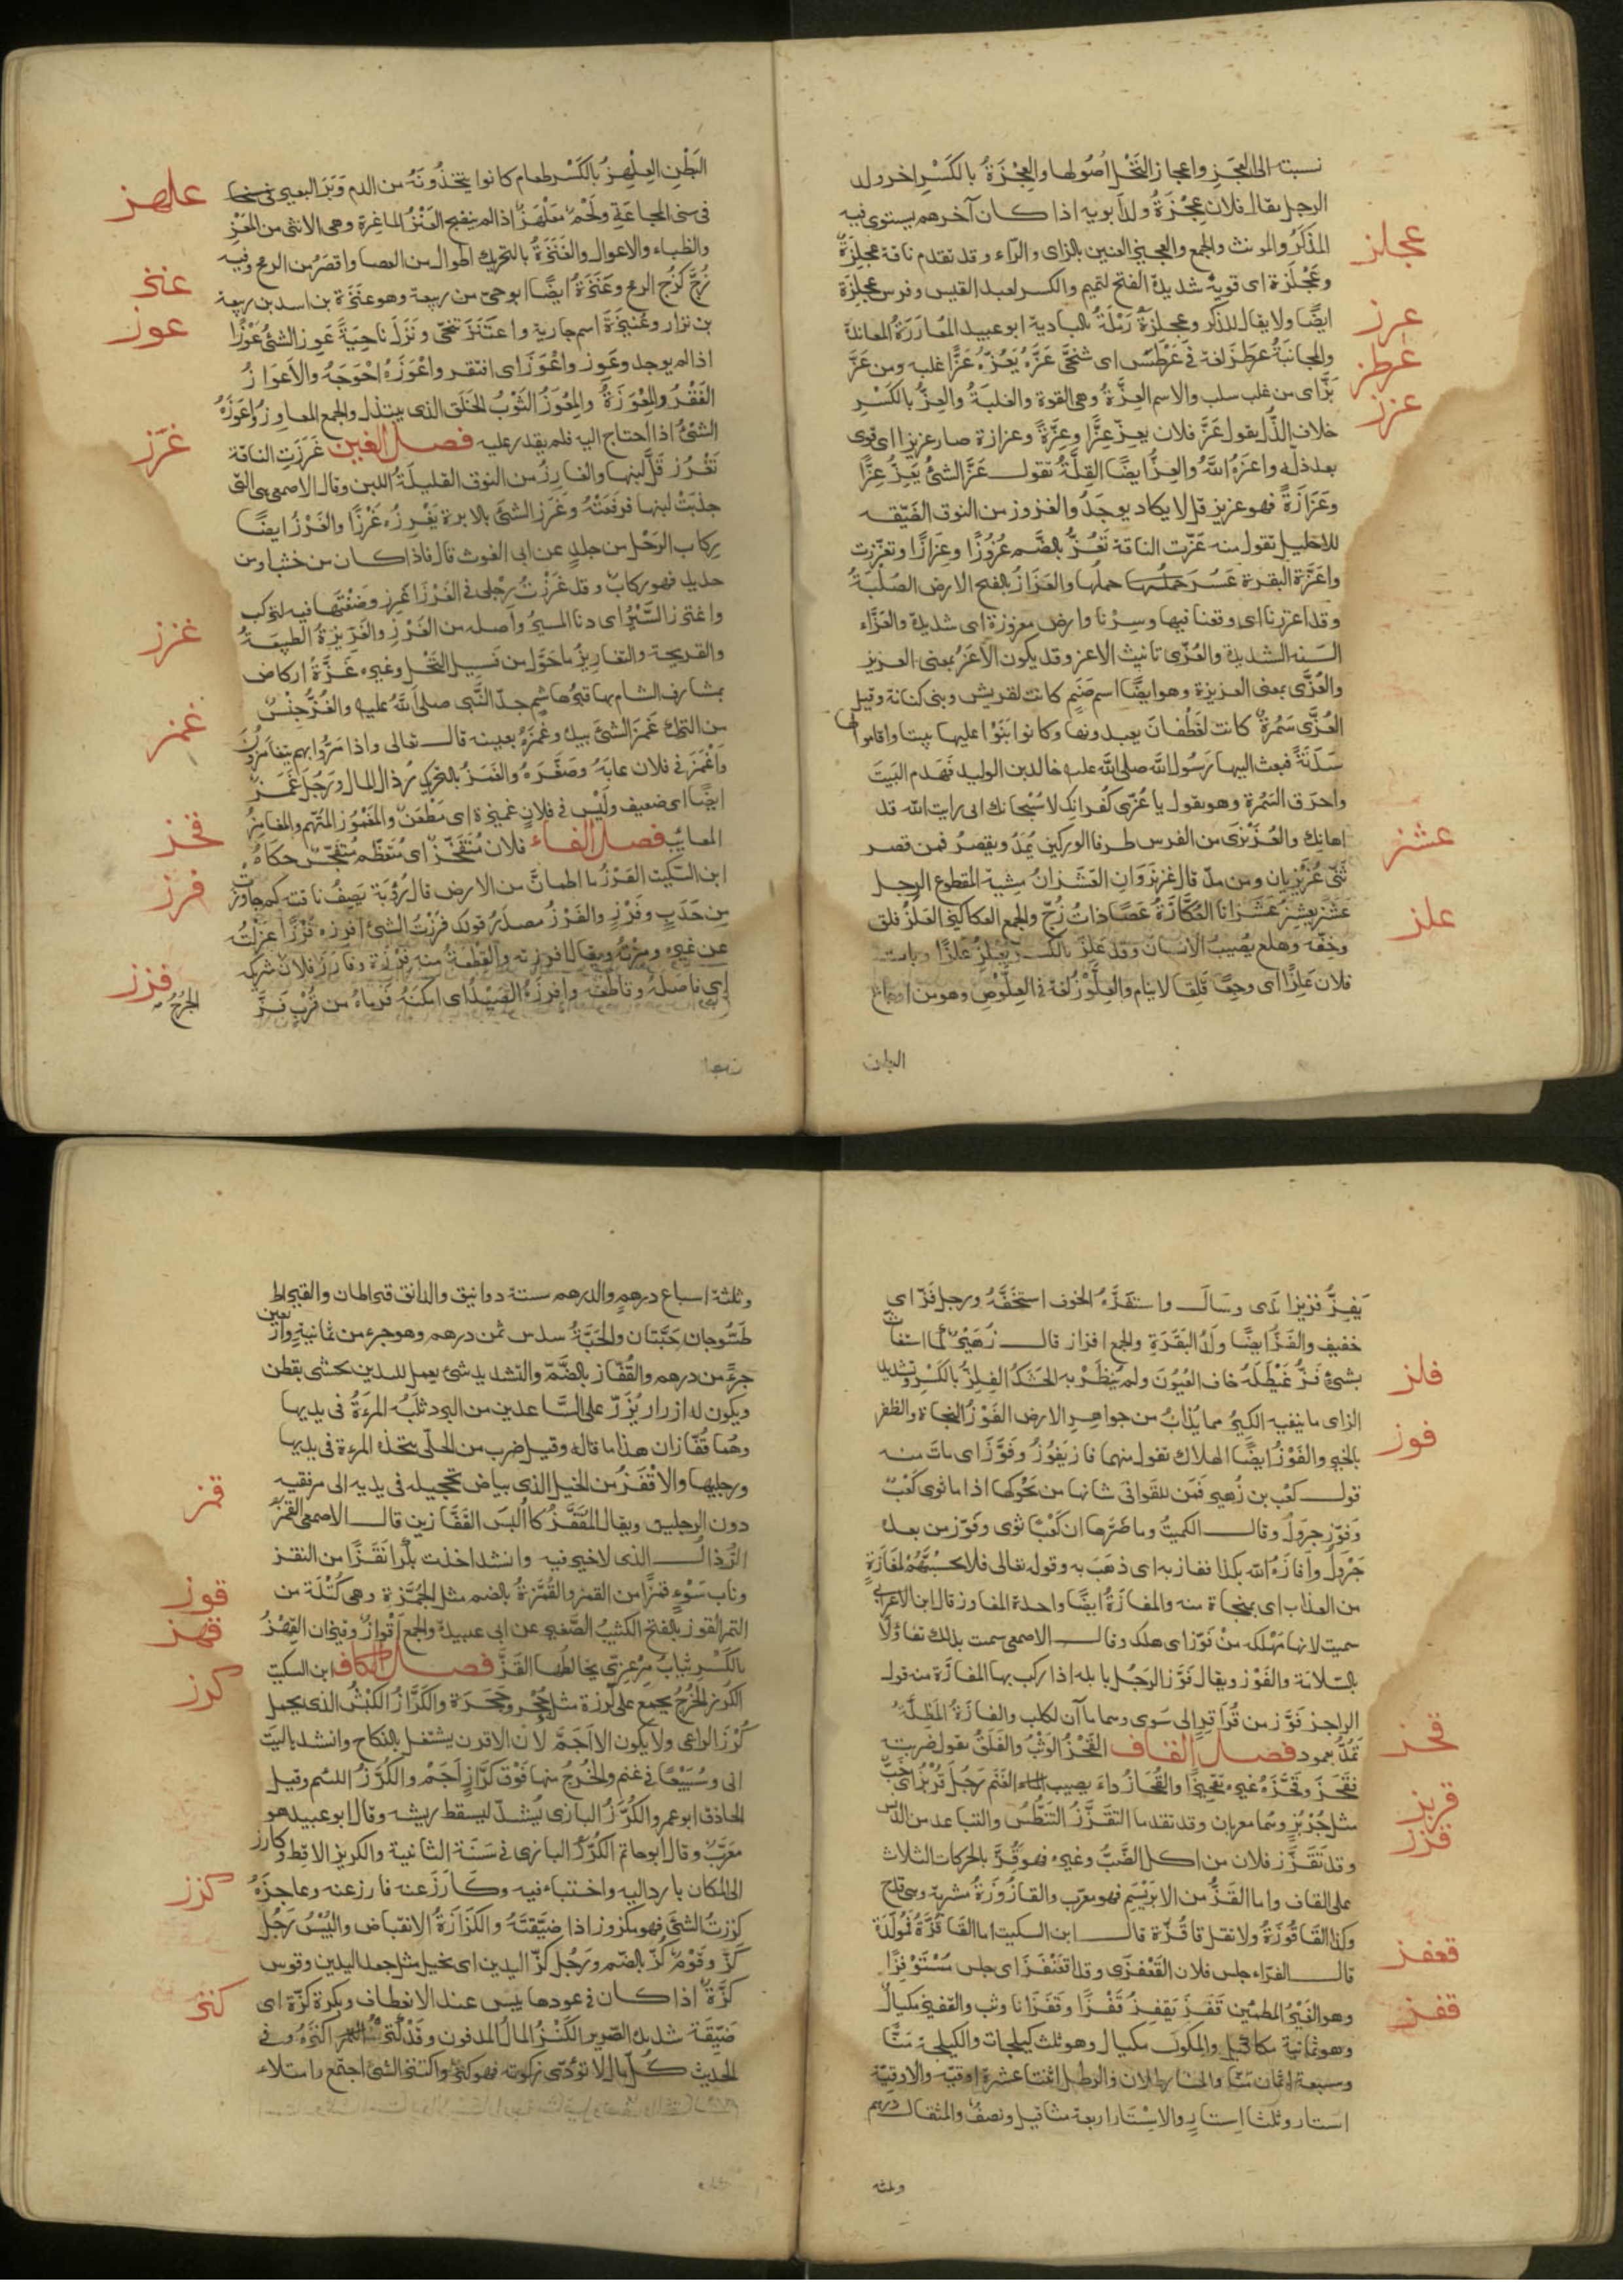 نسبته الى العجز واعجاز النَّخْل اُصُولها والعِجْزَةُ بالكَسْرِ اخر ولد
الرجل يقال فلان عِجْزَةُ ولد ابويه اذا كان آخرهم يستوى فيه
المذكّرُ والمونث والجمع
عجلز
وعَجْلَزة اى قويةٌ شديدة الفتح لتميم والكسر لعبد القيس وفرس عِجلِزَة
ايضًا ولا يقال للذكر وعِجلِزَةُ رَمْلَةٌ بالبادية ابو عبيد المُعَارَزَةُ المعاندة
عرز
والمجانبَةُ عرطز لغة فى عَرْطَس اى تنحَّى عَزَّهُ يَعُزّهُ عَزًّا غلبه ومن عَزَّ
عرطز
بَزَّ اى من غلب سلب والاسم العِزَّةُ وهى القوة والغلبَةُ والعِزُّ بالكَسْرِ
عزز
خلاف الذُّلّ يقول عَزَّ فلان يعِزّ عِزًّا وعِزَّةً وعزازة صار عزيزا اى قوى
بعد ذلّه واعَزَهُ اللهُ والعِزُّ ايضًا القِلَّةُ تقول عَزَّ الشئُ يَعِزُّ عِزًّا
وعَزَازَةً فهو عزيز قلّ لا يكاد يوجَدُ والعزوز من النوق الضَيّقه
للاحليل تقول منه عَزّت الناقة تَعُزُّ بالضَّم عُزُوزًا وعِزَازًا وتعزّزت
واعَزَّة البقرة عَسُرَ حملها والعَزَازُ بالفتح الارض الصُلْبَةُ
وقد اعززنا اى وقعنا فيها وسِرْنا وارض معزوزة اى شديدة والعَزَّاء
السّنه الشديدة والعُزّى تانيث الاعز وقد يكون الاَعَزُ بمعنى العزيز
والعُزَّى بمعنى العزيزة وهو ايضًا اسم صَنَمٍ كانت لقريش وبنى كنانة وقيل
العُزَّى سَمُرةٌ كانت لغَطَفان يعبدونها وكانوا بَنَوْا عليها بيتا واقاموا لها
سَدَنَةً فبعث اليها رَسُولُ اللّه صلى اللّه عليه خالد بن الوليد فهَدَم البَيتَ
واحرق السَّمُرة وهو يقول يا عُزّى كُفرانك لا سُبْحانك انى رايت اللّه قد
اهانك والعُزَيْزَى من الفرس طرفا الوركين يُمَدُّ ويقصَرُ فمن قصر
ثَنّى عُزَيْزِيان ومن مدّ قال عزيزَوَانِ العَشَزَانُ مِشيةُ المقطوع الرجل
عشز
عَشَزَ يعشِزُ عَشَزَانا العُكَّازَةُ عَصًا ذاتُ زُجٍّ والجمع العكاكيز العَلَزُ قلق
علز
وخفّه وهلع يُصيبُ الانسان وقد علِزَ بالكسر يَعلَزُ علزًا وبات
فلان عَلِزًا اى وجِعًا قَلِقا لا ينام والعِلَّوْزُ لغة فى العِلَّوْصِ وهو من
البطن
البَطْنِ العِلْهِزُ بالكَسْرِ طعام كانوا يتخذُونَهُ من الدم وَوَبَرِ البعير
علهز
فى سِنى المجاعَةِ ولَحْمٌ مُعَلْهَزٌ اذا لم ينضج العَنْزُ الماعزة وهى الانثى من المَعْزِ
والظباء والاوعال والعَنَزَةُ بالتحريك اطول من العصا واقصَرُ من الرمح وفيه
عنز
زُجّ كَزُجّ الرمح وعَنَزَةُ ايضًا ابو حىّ من ربيعة وهو عَنَزة بن اسد بن ربيعة
بن نزار وعُنَيزَةُ اسم جارية واعتَنَزَ تنحّى ونَزَلَ ناحِيَةً عَوِز الشئُ عَوَزًا
عوز
اذا لم يوجد وعَوِز واعْوَزَ اى افتقر واعْوَزَهُ احْوَجَهُ والاِعوَازُ
الفَقْرُ والمِعْوَزَةُ والمِعْوَزُ الثَوْبُ الخَلَق الذى يبتذل والجمع المعاوِزُ واعوَزَهُ
الشئُ اذا احتاج اليه فلم يقدر عليه فصل الغين غَرَزَتِ الناقة
غرز
تَغْرُز قَلَّ لبنها والغارِزُ من النوق القليلَةُ اللبن وقال الاصمعى هى التى
جذبَتْ لبنها فرفَعَتْهُ وغَرَزَ الشئَ بالابرة يَغْرِزُه غَرْزًا والغَرْزُ ايضًا
رِكابُ الرَحْل من جلدٍ عن ابى الغوث قال فاذا كان من خشب او من
حديد فهو ركابٌ وقد غَرَزْتُ رِجلى فى الغَرْزِ اغرِز وضعْتَها فيه لتركب
واغترز السَّيْرُ اى دنا المسيرُ واصله من الغَرْزِ والغَرِيزةُ الطبيعَةُ
والقريحة والتغاريزُ ما حُوّل من فَسِيل النَّخْل وغيره غَزَّةُ ارض
غزز
بمشارف الشام بها قبرُ هاشِم جدّ النَّبى صلى اللّه عليه والغُزُّ جِنْسٌ
من التُرك غَمَزَ الشئَ بيده وغَمَزَهُ بعينه قال تعالى واذا مَرُّوا بهم يتغامَزُونَ
غمز
واَغمَزَ فى فلان عابَهُ وصَغَّرَهُ والغَمَزُ بالتحريك رُذال المال ورَجُل غَمَزٌ
ايضًا اى ضعيف ولَيْس فى فلانٍ غَميزة اى مَطْعَنٌ والمَغْمُوز المُتّهم والمغامزُ
المعايبُ فصل الفاء فلان مُتَفَجِّزٌ اى مُتعَظّم مُتفَجِّسٌ حكاهُ
فخز
ابن السّكيت الفَرْزُ ما اطمانَّ من الارض قال رُؤبَة يَصِفُ ناقته كم جاوزت
فرز
مِن حَدَبٍ وفَرْزِ والفَرْزُ مصدَرُ قولك فرَزْتُ الشئَ افرِزه فَرْزًا عزلْتُه
عن غيره ومِزتُه ويقال افرزته والقِطْعَةُ منه فِرْزَة وفارَزَ فلان شريكه
اى فاصَلَهُ وقاطَعَه وافرَزَهُ الصَيْدُ اى امكَنَهُ فرَماهُ من قُرْبٍ فَزَّ
الجُرْحُ
فزز
يَفِزُّ فزيزا نَدى وسَالَ واستَفَزَّهُ الخوف استخَفَّهُ ورجل فَزّ اى
خفيف والفَزُّ ايضًا ولَدُ البَقَرَةِ والجمع افزاز قال زُهَيْرٌ كما استغاث
بشئٍ فَزُّ غَيْطَلَه خاف العُيُونَ ولم يُنظَرْ به الحَشَكُ الفِلِزُّ بالكَسْرِ وتشديد
فلز
الزاى ما ينفيه الكِيرُ مما يُذابُ من جواهِرِ الارض الفَوْزُ النجاة والظفر
فوز
بالخير والفَوْزُ ايضًا الهلاك تقول منهما فاز يَفُوْزُ وفَوَّزَ اى ماتَ منه
قول كعْب بن زُهيرٍ فمَن للقَوافى شانها من يَحُوكُها اذا ما ثوى كَعْبٌ
وَفوّز جرول وقال الكميتُ وما ضَرَّها ان كَعْبًا ثوى وفَوّز من بعده
جَرْوَلُ واَفازَهُ اللّه بكذا ففاز به اى ذهَبَ به وقوله تعالى فلا تحسِبَنَّهُمْ بمفَازَةٍ
من العذاب اى بمنجاة منه والمفازَةُ ايضًا واحدة المفاوز قال ابن الاعرابى
سميت لانها مَهْلكه مِنْ فَوّز اى هلك وقال الاصمعى سمت بذلك تفاؤلًا
بالسّلامة والفَوْز ويقال فَوَّز الرَجُل بابله اذا ركب بها المفازَة منه قول
الراجز فَوّز من قُراقِرٍ الى سُوى وسما مآآن لكلب والفازَةُ المَظَلَّةُ
تُمَدُّ بعمود فصل القاف القَحْزُ الوَثْبُ والقَلَقُ يقول ضربته
قحز
فقَحَزَ وقَحَّزَهُ غيرهُ تقحِيزًا والقُحَازُ داءٌ يصيب الغَنَم رَجُل قُرْبُزٌ اى خَبٌّ
قربز
مثل جُرْبُزٍ وهُما معربان وقد تقدما التقَزُّزُ التَنَطُّسُ والتباعد من الدَّنَس
قزز
وقد تقَزَّز فلان من اكل الضَّبّ وغيره فهو قَزٌّ بالحركات الثلاث
على القاف واما القَزُّ من الابْرَيْسَم فهو معرّب والقازُوزَةُ مشربة وهى قدح
وكذا القَاقُوزَةُ ولا تقل قاقُزّة قال ابن السكيت اما القَاقُزَّةُ فمُولّدَة
قال الفرّاء جلس فلان القَعْفَزَى وقد اقعَنْفَزَ اى جلس مُسْتَوْفِزًا
قعفز
وهو الغَيْرُ المطمئن قفَزَ يَقفِزُ قَفْزًا وقَفَزَانا وثب والقفيزُ مكيالٌ
قفز
وهو ثمانية مكاكيك والمكوك مكيال وهو ثلث كيلجات والكيلجة مَنًّا
وسبعة اثمان مَنًا والمَنا رطلان والرطل اثنتا عشرة اوقيّه والاوقيّة
استار وثلثا استارٍ والاسْتَار اربعة مثاقيل ونصفٌ والمثقال درهم
وثلثه
وثلثة اسباع درهم والدرهم ستة دوانيق والدانق قيراطان والقيراط
طسّوجان حَبّتان والحَبَّةُ سدس ثمن درهم وهو جزء من ثمانية واربعين
جزءً من درهم والقُفّاز بالضَّمّ والتشديد شئ يعمل لليدين يحشى بقطن
ويكون له ازرار يُزَرّ على السَّاعدين من البرد تلبَسُه المرءَةُ فى يديها
وهُما قُفّازان هذا ما قاله وقيل ضرب من الحلّى تتخذه المرءة فى يديها
ورجليها والاَقْفَزُ من الخيل الذى بياض تحجيله فى يديه الى مرفقيه
دون الرجلين ويقال المقَفَّزُ كما اُلبسَ القفَّازين قال الاصمعى القَمَزُ
قمز
الرُّذالُ الذى لا خير فيه وانشد اخذت بكرا نَقَزًا من النقز
وناب سَوْءٍ قمَزًا من القمز والقُمْزةُ بالضم مثل الجُمْزة وهى كُتْلَة من
التمر القوز بالفتح الكثيبُ الصَّغيرُ عن ابى عبيدةَ والجمع اَقْوازٌ وقيزان القِهْزُ
قوز
قهز
بالكَسْرِ ثيابٌ مِرْعِزَّى يخالطها القَزّ فصل الكاف ابن السكيت
كرز
الكُرْز الخُرْجُ يجمع على كِرَزة مثل جُحْرٍ وجِحَرَة والكَرَّازُ الكَبْشُ الذى يحمل
كُرْزَ الراعى ولا يكون الا اَجَمَّ لان الاقرن يشتغل بالنكاح وانشد ياليت
انى وسُبَيْعًا فى غنم والخُرْجُ منها فَوْقَ كَرَّازٍ اَجَمّ والكُرَّزُ اللئيم وقيل
الحاذق ابو عمرو الكُرَّزُ البازى يُشدُّ ليسقط ريشه وقال ابو عبيد هو
مَعَرَّبٌ وقال ابو حاتم الكُرَّزُ البازى فى سَنَة الثانية والكريز الاقِط وكارز
الى المكان بادر اليه واختباء فيه
كزز
كزَزتُ الشئَ فهو مكزوز اذا ضيّقتَهُ والكَزَازَةُ الانقباض واليُبْسُ رَجُل
كَزٌّ وقَوْمٌ كُزّ بالضّم ورَجُل كَزّ اليدين اى بخيل مثل جعد اليدين وقوس
كَزَّةٌ اذا كان فى عودها يبس عند الانعطاف وبكرة كزّة اى
كنز
ضَيّقَة شديدة الصَّرير الكَنْزُ المالُ المدفون وقد كنَزْتُه اكنزهُ وفى
الحَديث كُلّ مال لا تؤدّى زكوته فهو كنزٌ واكتنز الشئُ اجتمع وامتلاء